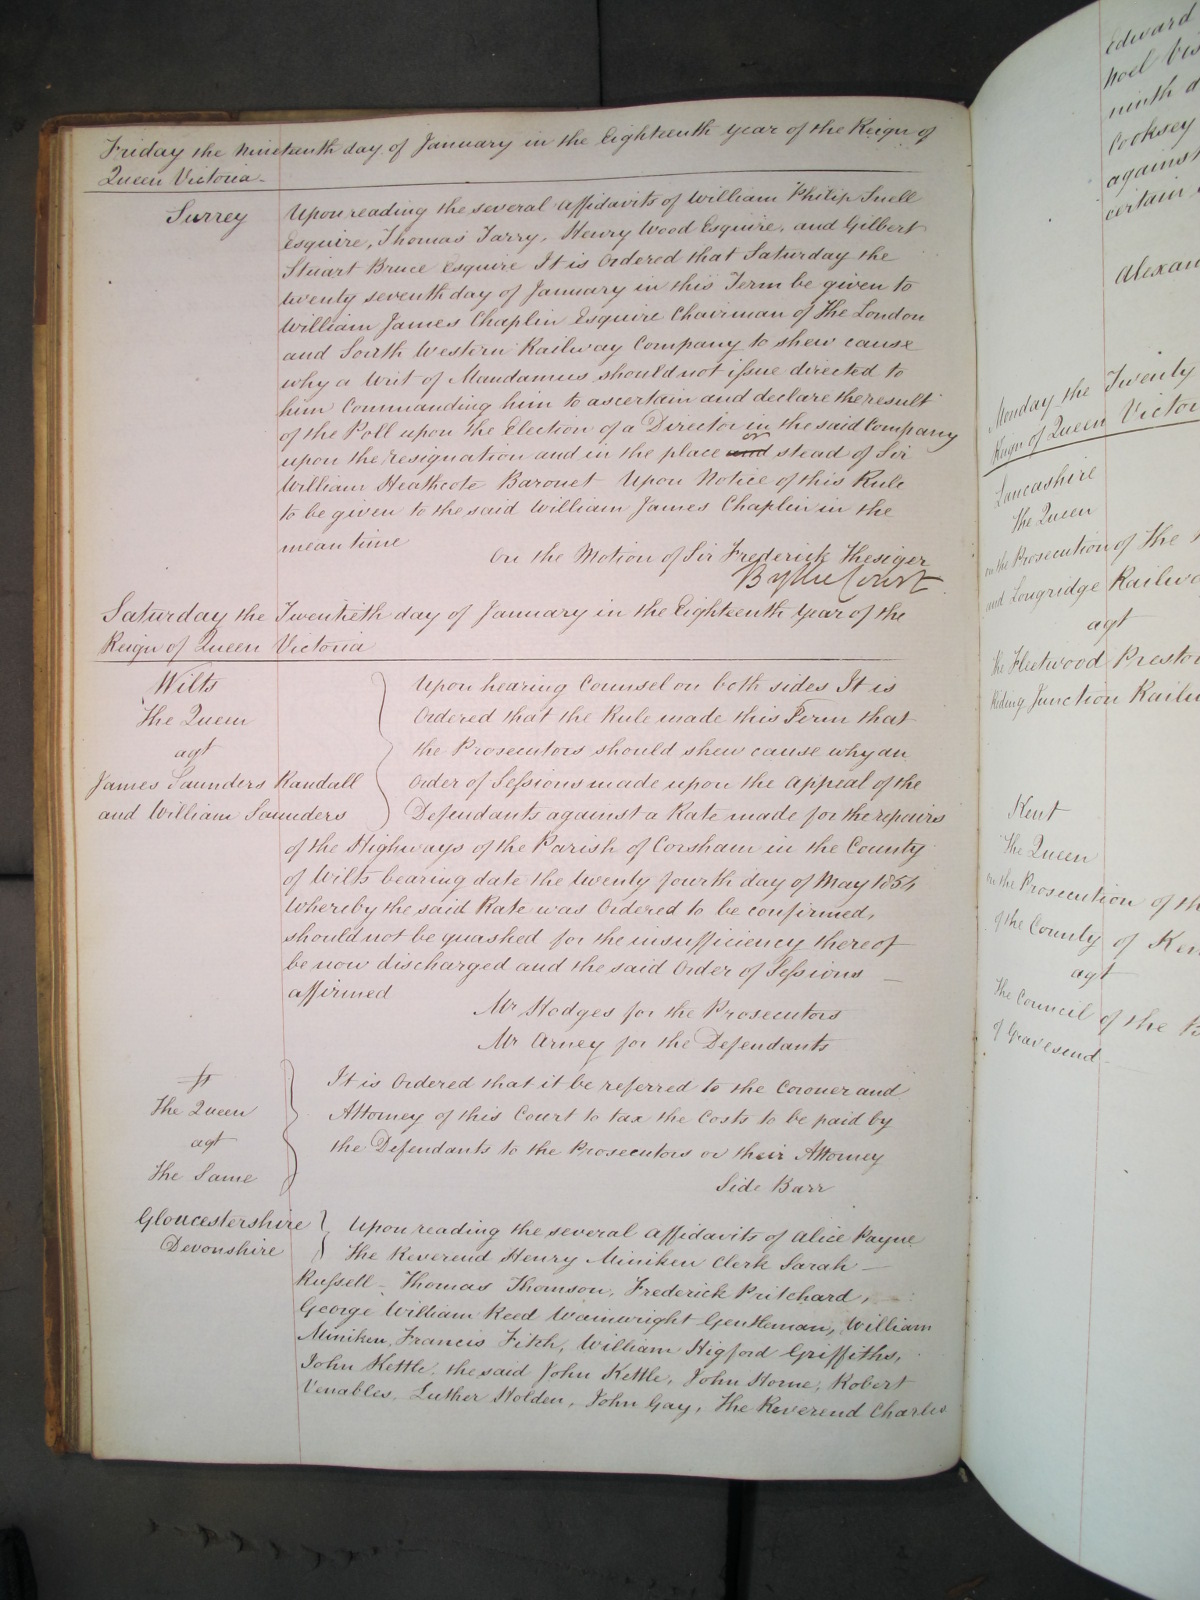 Friday the nineteenth day of January in the Eighteenth year of the Reign of
Queen Victoria -
Surrey
Upon reading the several affidavits of William Philip Snell
Esquire, Thomas Tarry, Henry Wood Esquire, and Gilbert
Stuart Bruce Esquire It is Ordered that Saturday the
twenty seventh day of January in this Term be given to
William James Chaplin Esquire Chairman of The London
and South Western Railway Company to shew cause
why a Writ of Mandamus should not issue directed to
him Commanding him to ascertain and declare the result
of the Poll upon the Election of a Director in the said Company
upon the resignation and in the place and or stead of Sir
William Heathcote Baronet Upon Notice of this Rule
to be given to the said William James Chaplin in the
mean time
On the Motion of Sir Frederick Thesiger
By the Court
Saturday the Twentieth day of January in the Eighteenth Year of the
Reign of Queen Victoria
Wilts
The Queen
agt
James Saunders Randall
and William Saunders
Upon hearing Counsel on both sides It is
Ordered that the Rule made this Term that
the Prosecutors should shew cause why an
Order of Sessions made upon the appeal of the
Defendants against a Rate made for the repairs
of the Highways of the Parish of Corsham in the County
of Wilts bearing date the twenty fourth day of May 1854
Whereby the said Rate was Ordered to be confirmed,
should not be quashed for the insufficiency thereof
be now discharged and the said Order of Sessions —
affirmed
Mr Hodges for the Prosecutors
Mr Arney for the Defendants
The Queen
agt
The Same
It is Ordered that it be referred to the Coroner and
Attorney of this Court to tax the Costs to be paid by
the Defendants to the Prosecutors or their Attorney
Side Barr
Gloucestershire
Devonshire
Upon reading the several affidavits of Alice Payne
The Reverend Henry Miniken Clerk Sarah —
Russell - Thomas Thomson, Frederick Pritchard,
George William Reed Wainwright Gentleman, William
Miniken, Francis Fitch, William Higford Griffiths,
John Kettle, the said John Kettle, John Horne, Robert
Venables, Luther Holden, John Gay, The Reverend Charles
Edward
Noel
ninth
Cooksey
against
certain
Monday the Twenty
Reign of Queen Victor
Lancashire
The Queen
on the Prosecution of the
and Longridge Railwa
agt
the Fleetwood Presto
Riding Junction Railw
Kent
The Queen
on the Prosecution of th
of the County of Ken
agt
The Council of the
of Gravesend -